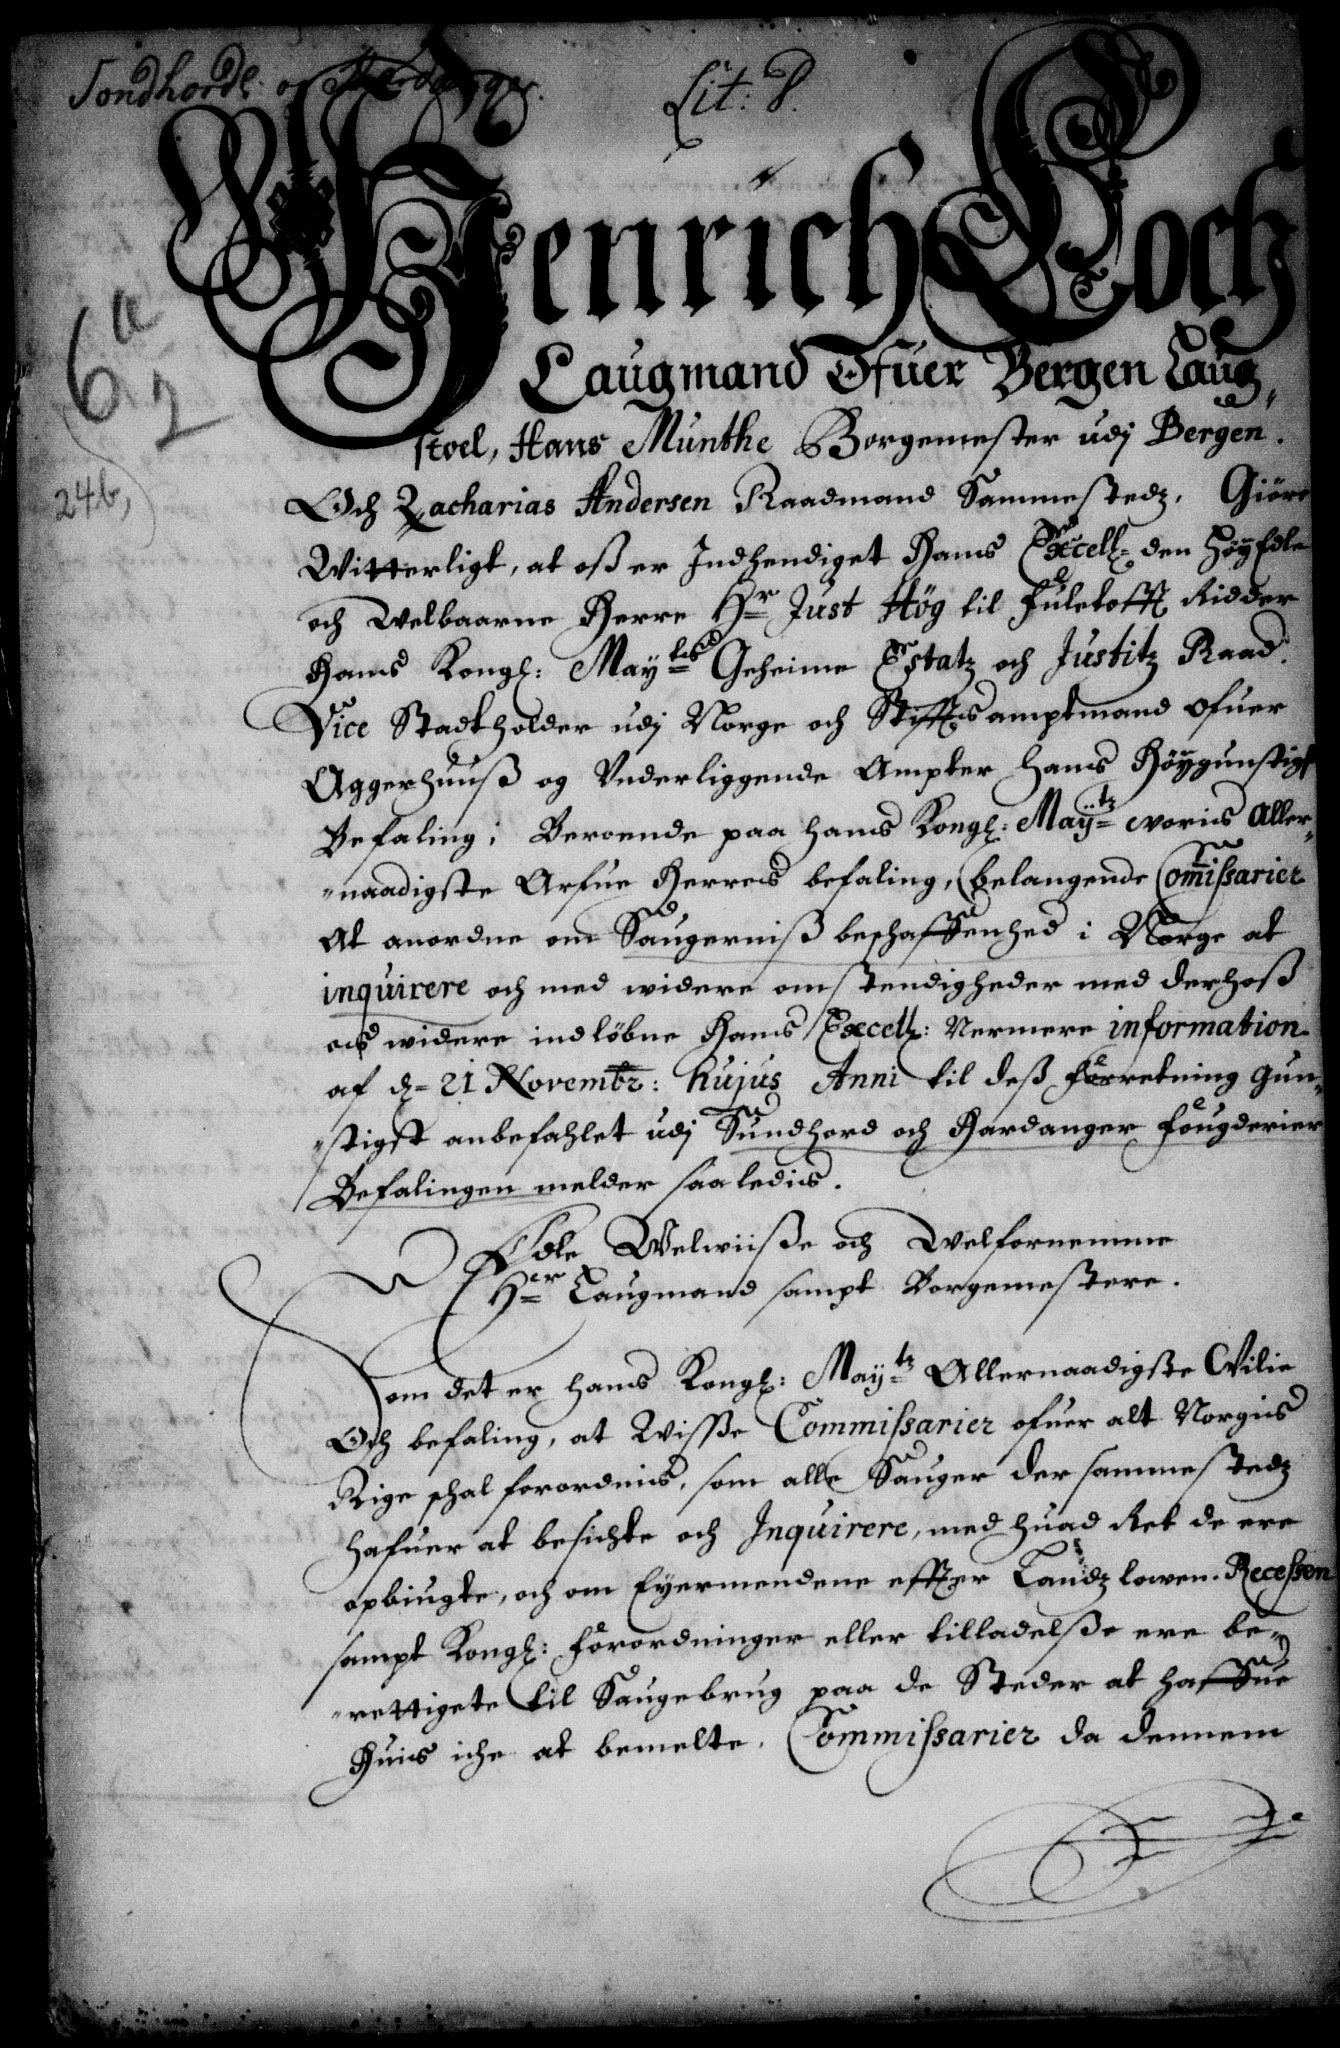 Sondhordl: og Hardanger.
Lit: P.
6 a
2
246,
Henrich Coch
Laugmand Ofuer Bergen Laug,
stoel, Hans Munthe Borgemester udj Bergen.
Och Zacharias Andersen Raadmand Sammestedz, Giöre
Witterligt, at oß er Indhendiget Hans Excell= den HöyEdle
och Welbaarne Herre Hr Just Hög til Fuletofft Ridder
Hans Kongl: Maytes Geheime Estatz och Justitz Raad.
Vice Stadtholder udj Norge och Stifftsamptmand ofuer
Aggerhuuß og Underliggende Ampter hans Höygunstigst
Befaling; Beroende paa hans Kongl: Maÿtz voris Aller,
"naadigste Arfue Herres befaling, belangende Commissarier
At anordne om Saugernis beschaffenhed i Norge at
inquirere och med widere omstendigheder med derhoß
os widere indlöbne Hans Excell: Nermere information
af d= 21 Novembr: hujus Anni til deß forretning gun,
"stigst anbefahlet udj Sundhord och Hardanger fougderier
Befalingen melder saaledis.
Edle Welwiiße och Welfornemme
Hr Laugmand sampt Borgemestere.
Som det er hans Kongl: Maytz Allernaadigste Vilie
Och befaling, at Wisse Commissarier ofuer alt Norgis
Rige schal forordnis, som alle Sauger der sammestedz
hafuer at besichte och Inquirere, med huad Ret de ere
opbiugte, och om Eyermendene effter Landz lowen. Recessen
sampt Kongl: forordninger eller tilladelse ere be,
"rettigete til Saugebrug paa de Steder at haffue
Huis iche at bemelte. Commissarier da dennem